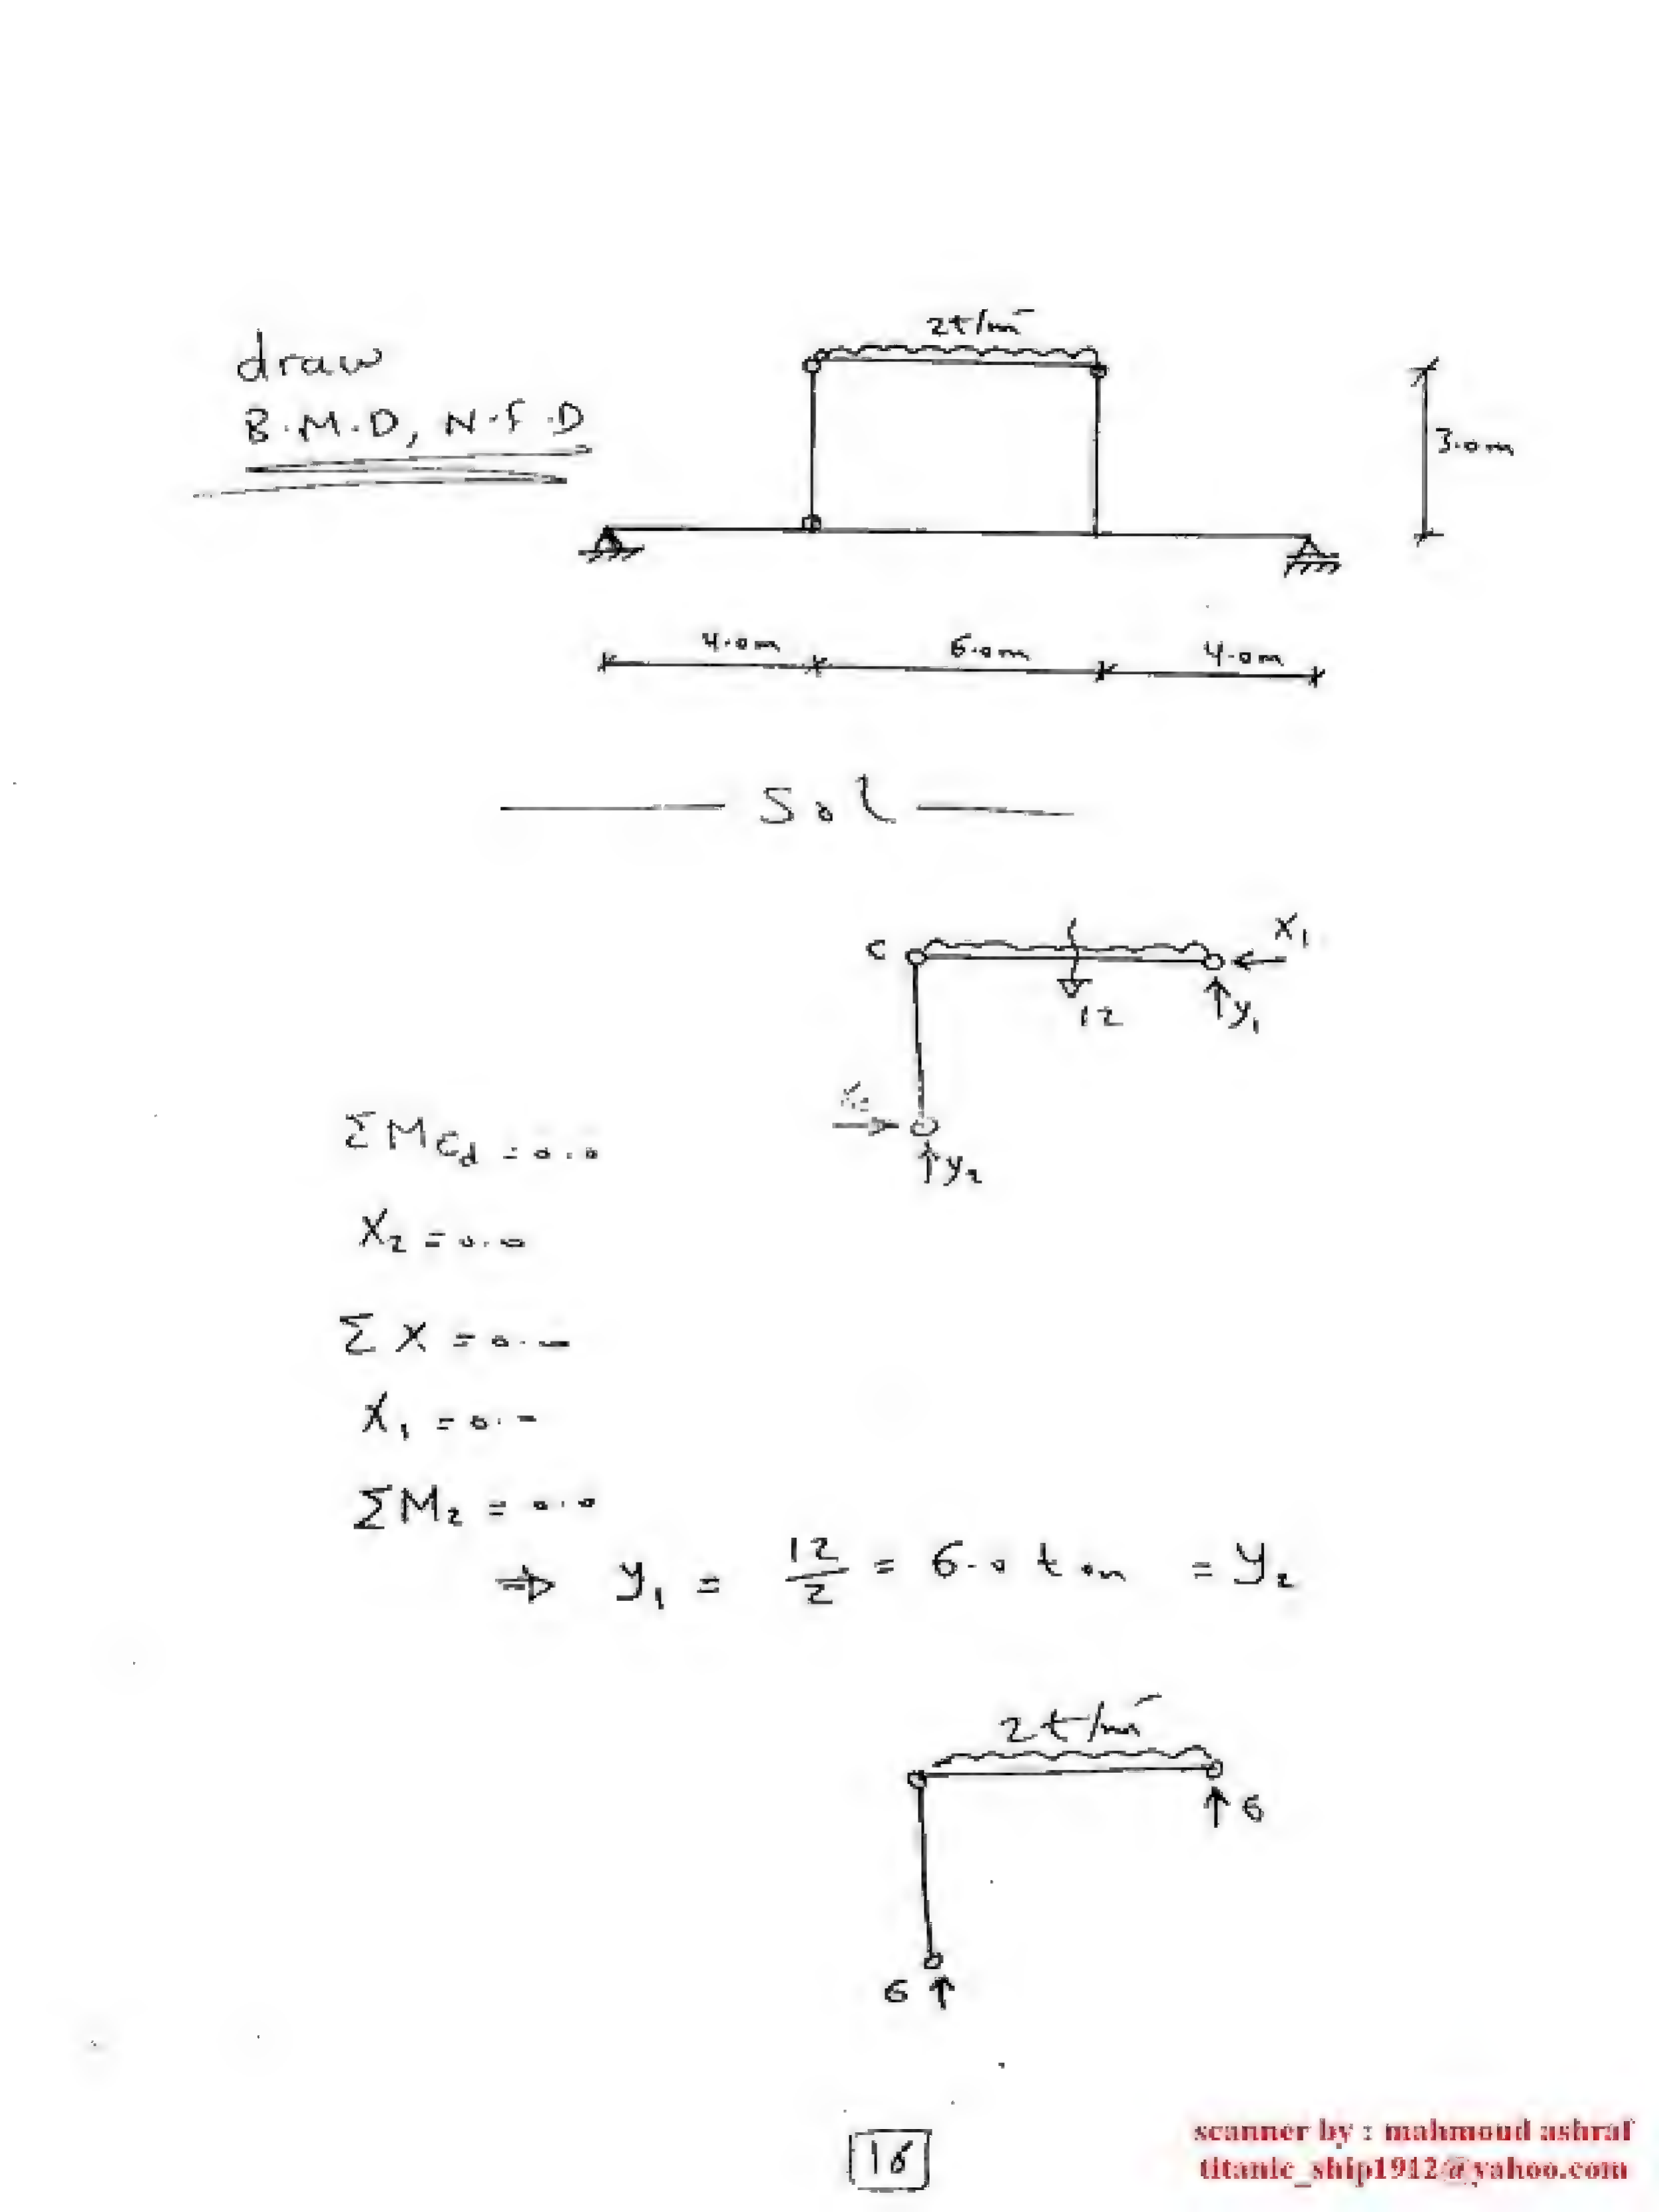 2t/m
draw
B.M.D, N.F.D
3.0m
4.0m 6.0m 4.0m
Sol
C X1
12 y1
y2
ΣMcd = 0.0
X2 = 0.0
ΣX = 0.0
X1 = 0.0
ΣM2 = 0.0
⇒ y1 = 12/2 = 6.0 ton = y2
2t/m
6
6
16
scanner by : mahmoud ashraf
titanic_ship1912@yahoo.com